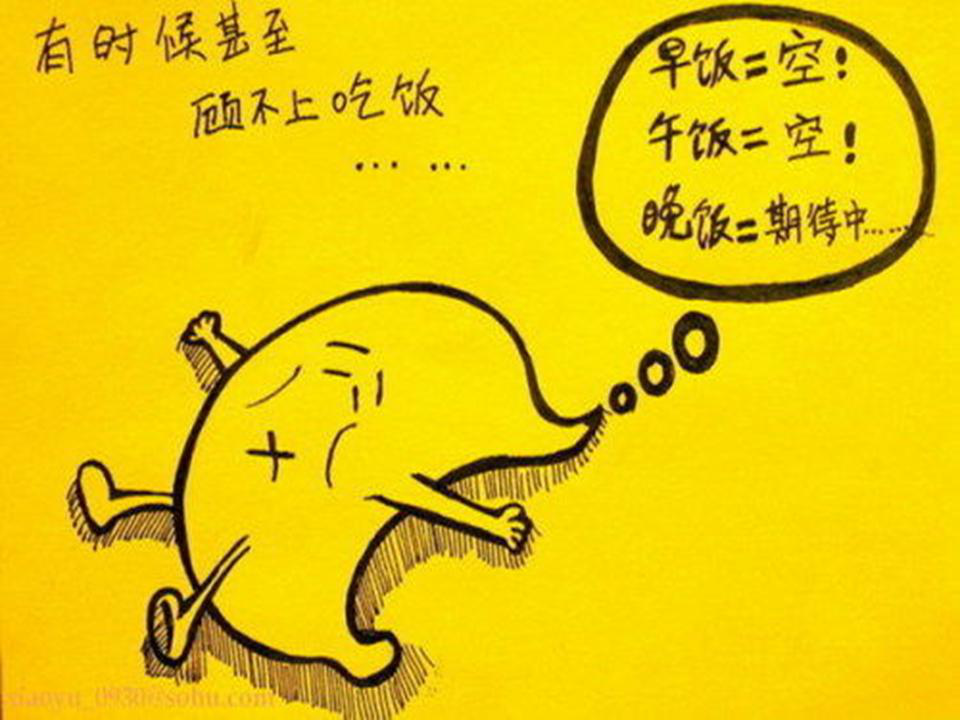 有时候甚至
顾不上吃饭
... ...
早饭=空!
午饭=空!
晚饭=期待中......
xiaoyu_0930@sohu.com